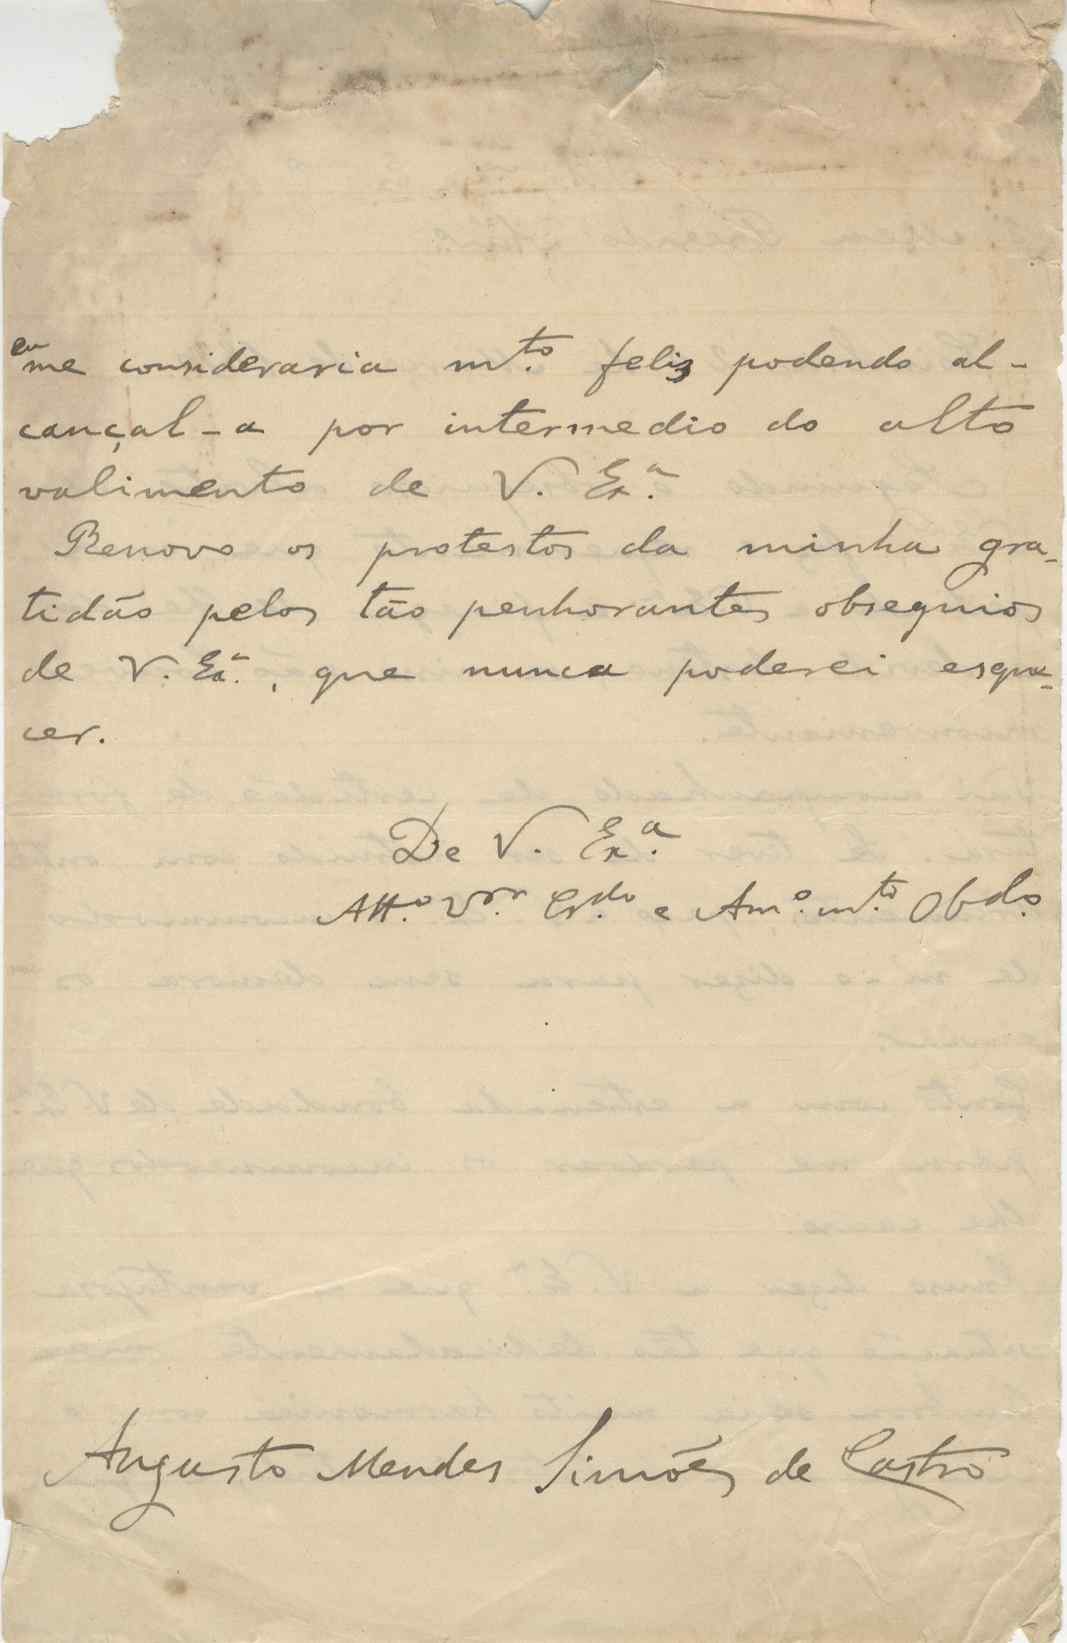 eu
me consideraria m.to feliz podendo al-
cançal-a por intermedio do alto
valimento de V. Ex.a
Renovo os protestos da minha gra-
tidão pelos tão penhorantes obsequios
de V. Ex.a, que nunca poderei esque-
cer.
De V. Ex.a
Att.o V.or Cr.do e Am.o m.to Obd.o
Augusto Mendes Simões de Castro